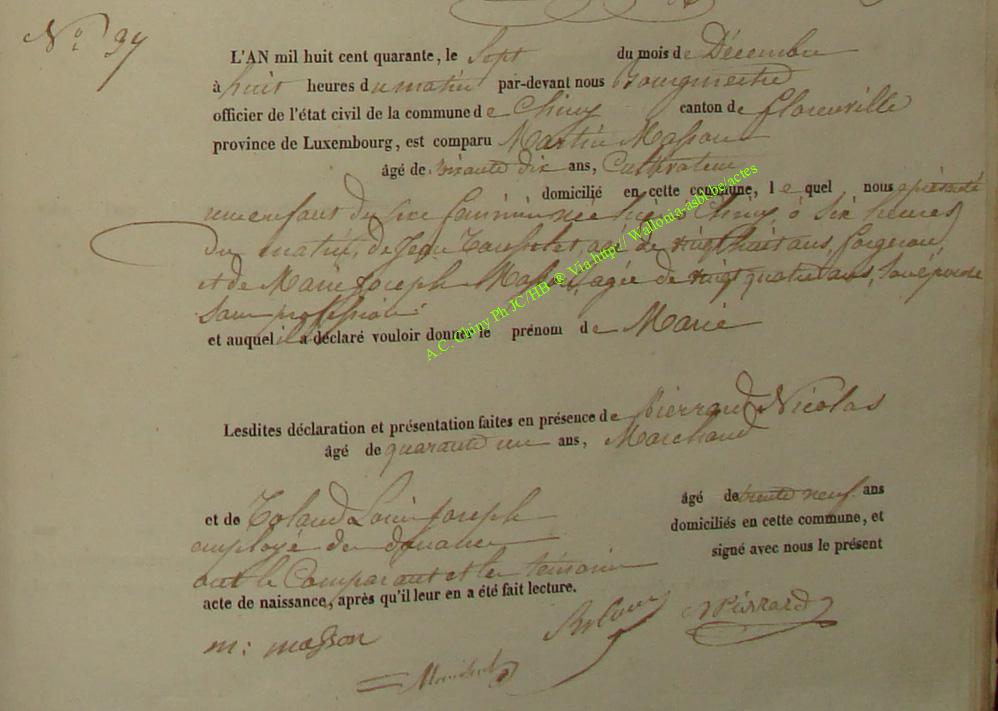 N° 37
L'AN mil huit cent quarante, le Sept du mois de Décembre
à huit heures du matin par-devant nous Bourgmestre
officier de l'état civil de la commune de Chiny canton de florenville
province de Luxembourg, est comparu Martin Masson
âgé de soixante dix ans, Cultivateur
domicilié en cette commune, le quel nous a présenté
une enfant du sexe féminin née hier à Chiny, à six heures
du matin, de Jean agé de vingt huit ans, forgeron,
et de Marie Joseph Masson, agée de vingt quatre ans, son épouse
sans profession
et auquel il a déclaré vouloir donner le prénom de Marie
Lesdites déclaration et présentation faites en présence de Pierrard Nicolas
âgé de quarante un ans, Marchand
et de Toland Louis Joseph âgé de trente neuf ans
employé de douane domiciliés en cette commune, et
ont le Comparant et les témoins signé avec nous le présent
acte de naissance, après qu'il leur en a été fait lecture.
m: masson NPierrard
A.C. Chiny Ph JC/HB ® Via http:// Wallonia-asbl.be/actes